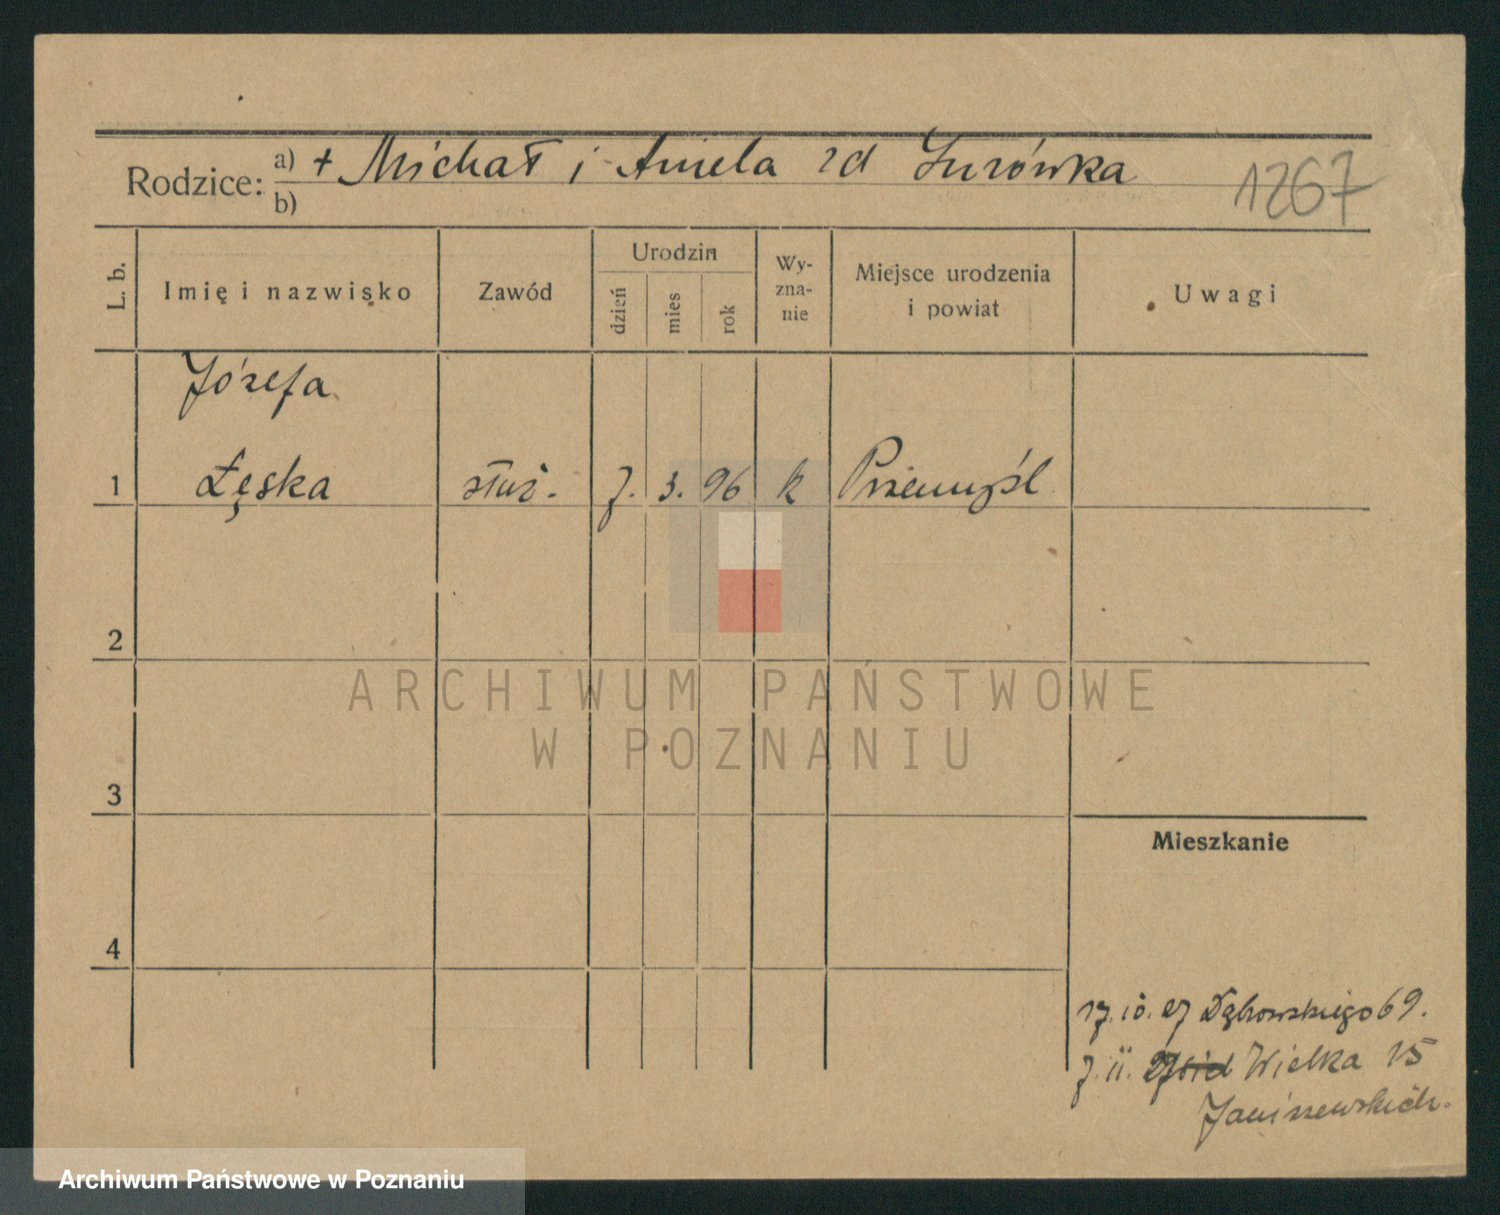 Rodzice: a) + Michał i Aniela zd
b)
1267
L. b.
Imię i nazwisko
Zawód
Urodzin
dzień
mies
rok
Wy-
zna-
nie
Miejsce urodzenia
i powiat
Uwagi
Józefa
1 Łęska służ. 7. 3. 96 k Przemyśl
2
3
4
Mieszkanie
17.10.27 Dąbrowskiego 69.
7.11.27 Wielka 15
Janiszewskich.
ARCHIWUM PAŃSTWOWE
W POZNANIU
Archiwum Państwowe w Poznaniu